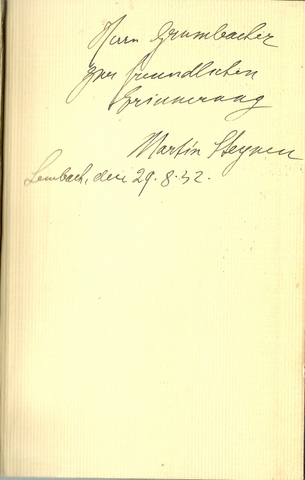 Herrn Grumbacher
zur freundlichen
Erinnerung
Martin Heynen
Lembach, den 29.8.32.